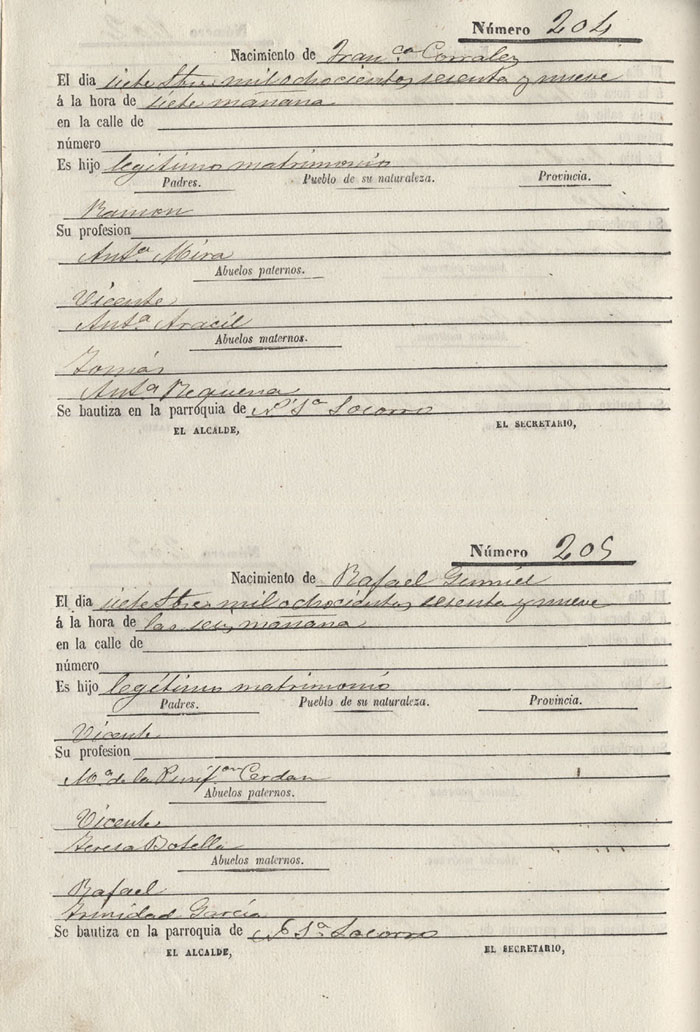 Número 204
Nacimiento de Fran.ca Corrales
El dia siete Stbre mil ochocientos sesenta y nueve
á la hora de siete mañana
en la calle de
número
Es hijo legitimo matrimonio
Padres. Pueblo de su naturaleza. Provincia.
Ramon
Su profesion
Ant.a Mira
Abuelos paternos.
Vicente
Ant.a Aracil
Abuelos maternos.
Tomás
Ant.a Requena
Se bautiza en la parróquia de N.a S.a Socorro
EL ALCALDE, EL SECRETARIO,
Número 205
Nacimiento de Rafael Gumiel
El dia siete Stbre mil ochocientos sesenta y nueve
á la hora de las seis mañana
en la calle de
número
Es hijo legítimo matrimonio
Padres. Pueblo de su naturaleza. Provincia.
Vicente
Su profesion
M.a de la Purif.on Cerdan
Abuelos paternos.
Vicente
Teresa Botella
Abuelos maternos.
Rafael
Trinidad García
Se bautiza en la parroquia de N.a S.a Socorro
EL ALCALDE, EL SECRETARIO,